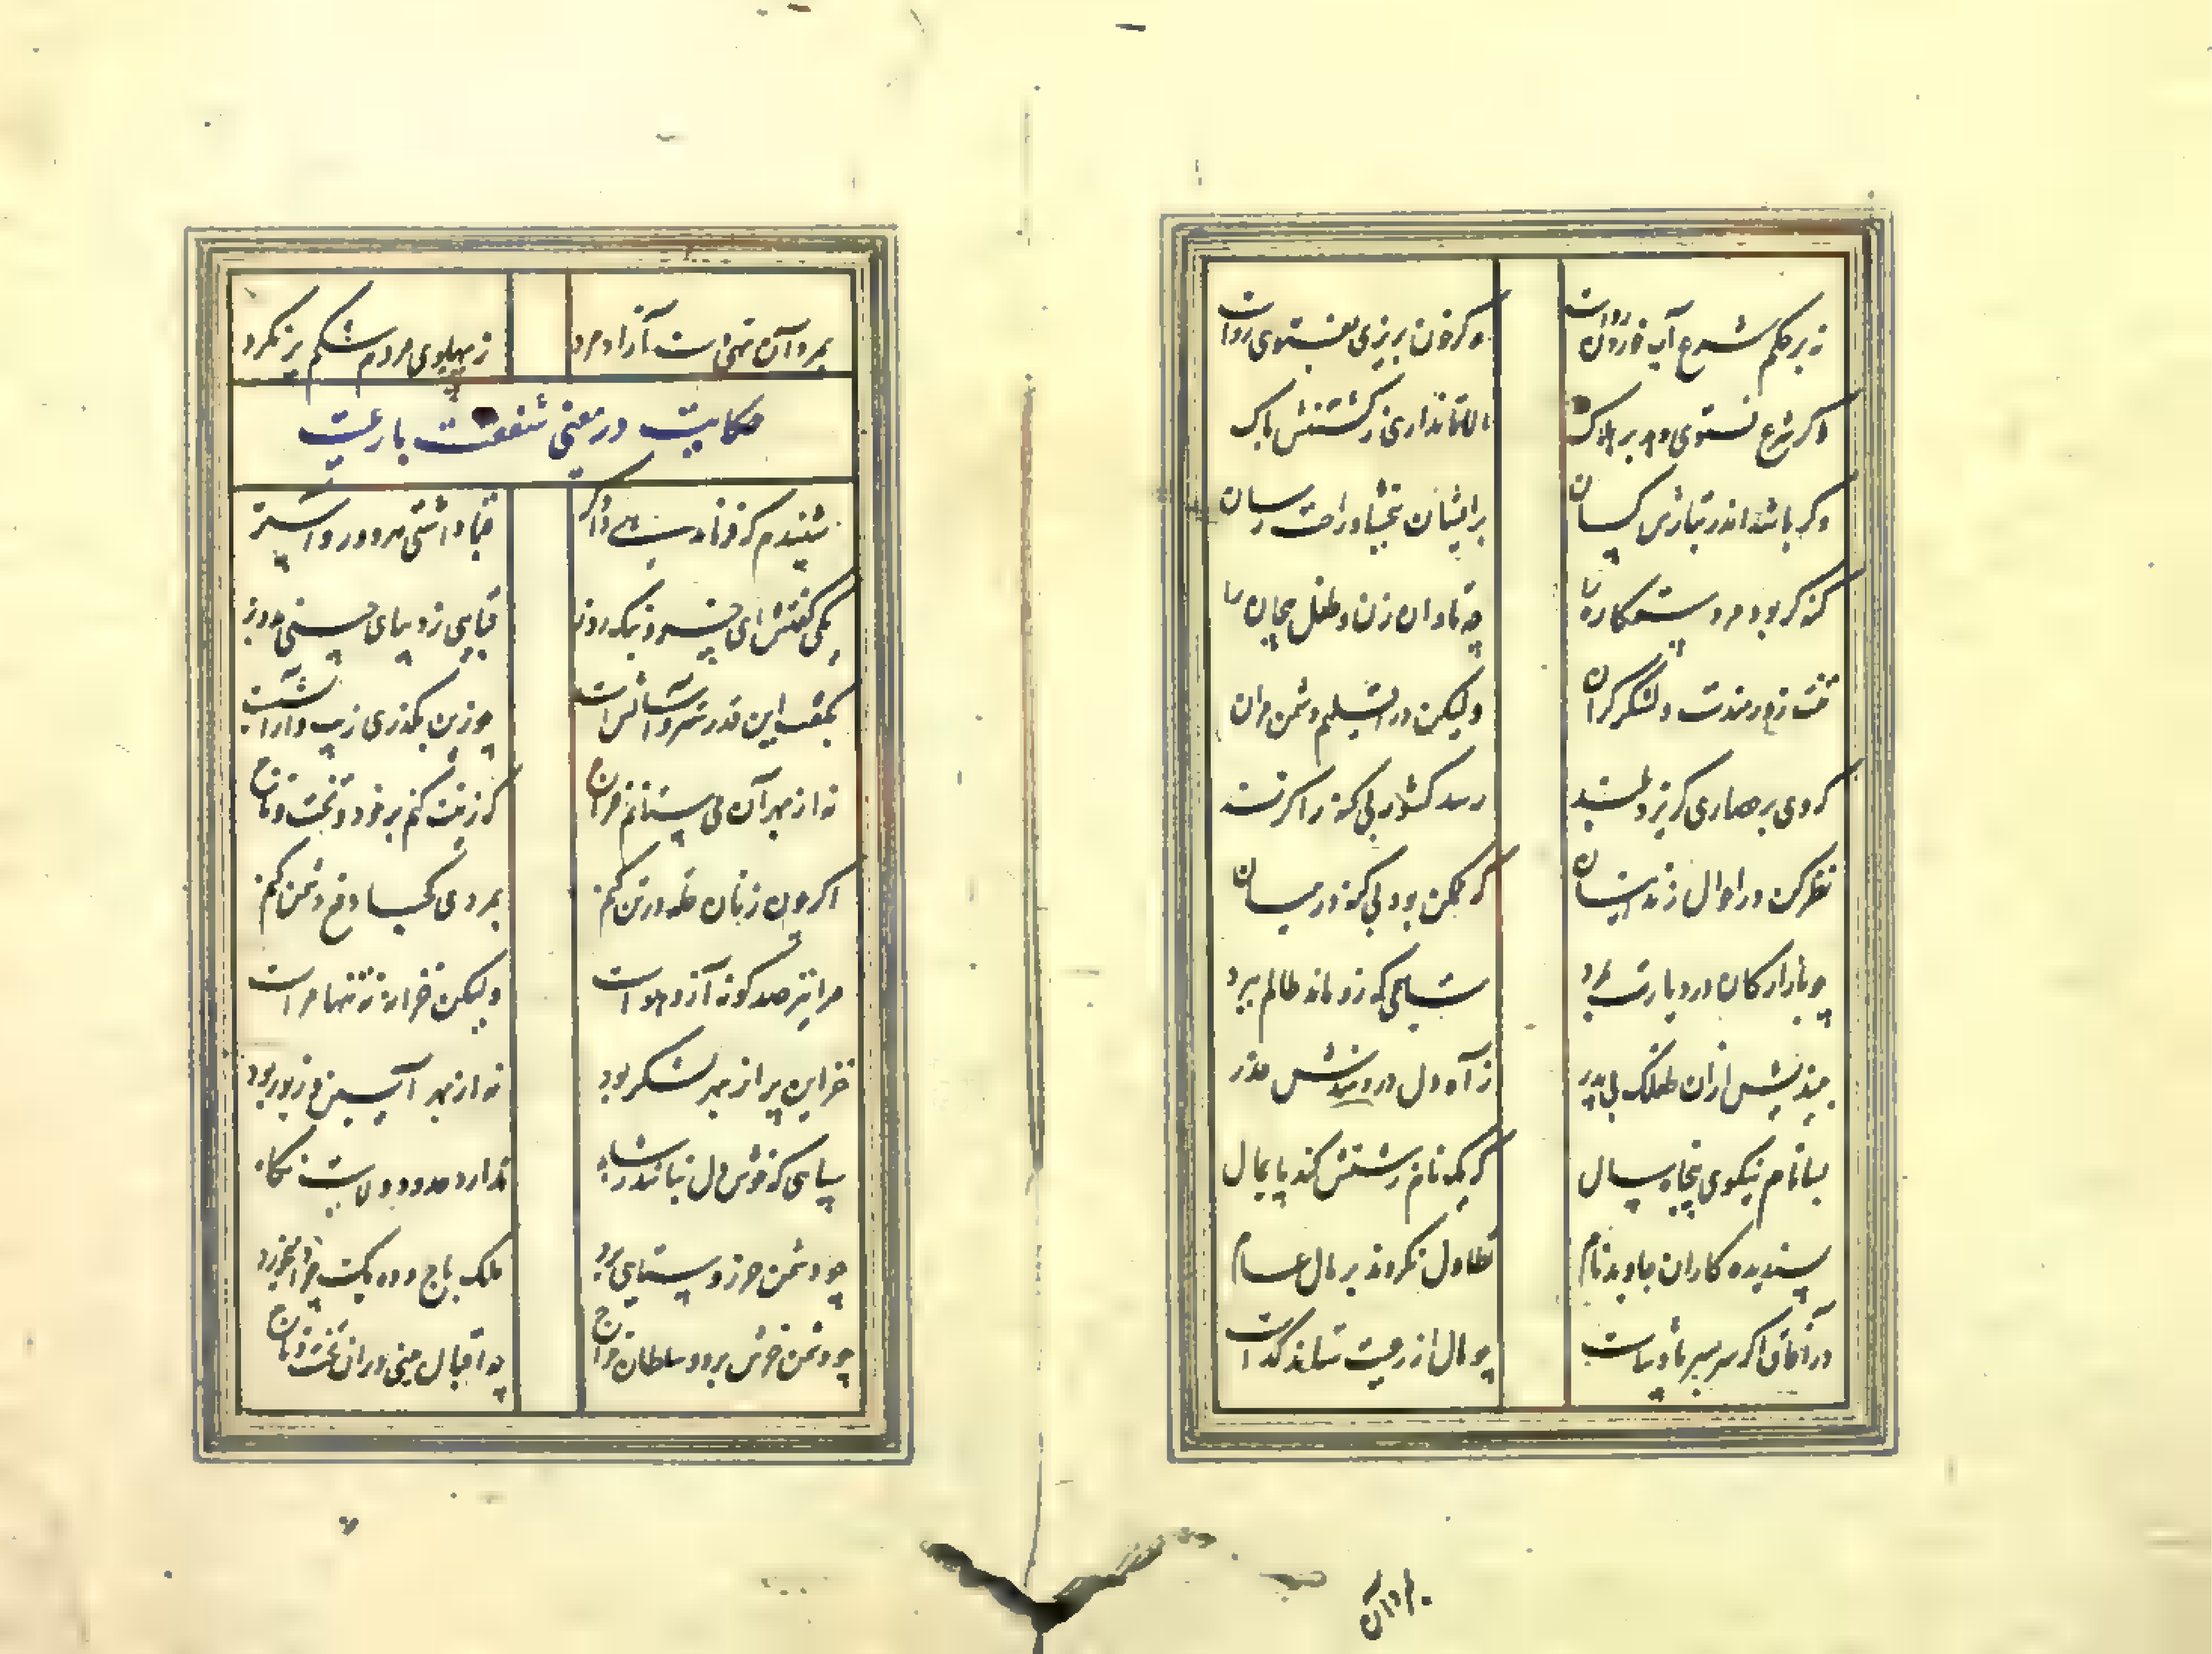 نه بر حکم شرع آب خوردن رواست وگر خون بریزی بفتوی رواست
اگر شرع فتوی دهد بر هلاک الا تا نداری ز کشتنش باک
وگر باشد اندر تبارش کسان بر ایشان ببخشا و راحت رسان
گنه کر بود مرد ستمکاره را چه تاوان زن و طفل بیچاره را
تنت زورمندست و لشکر گران ولیکن در اقلیم دشمن مران
که وی بر حصاری گریزد بلند رسد کشور بی گنه را گزند
نظر کن در احوال زندانیان که ممکن بود بی گنه در میان
چو بازارکان در دیارت بمرد بمالش که زو ماند ظالم ببرد
بیندیش ازان طفلک بی پدر ز آه دل دردمندش حذر
بسا نام نیکوی پنجاه سال که یک نام زشتش کند پایمال
پسندیده کاران جاوید نام تطاول نکردند بر مال عام
در آفاق اگر سر بسر پادشاست چو مال از رعیت ستاند گداست
بمرد آن
بمرد آن تهی دست آزاد مرد ز پهلوی مردم شکم پر نکرد
حکایت در معنی شفقت با رعیت
شنیدم که فرماندهی دادگر قبا داشتی هر دو رو آستر
یکی گفتش ای خسرو نیک روز قبایی ز دیبای چینی بدوز
بگفت این قدر ستر و آسایش است چو زین بگذری زیب و آرایش است
نه از بهر آن می ستانم خراج که زینت کنم بر خود و تخت و تاج
اگر چون زنان حله در تن کنم بمردی کجا دفع دشمن کنم
مرا نیز صد گونه آز و هواست ولیکن خزانه نه تنها مراست
خزاین پر از بهر لشکر بود نه از بهر آیین و زیور بود
سپاهی که خوش دل نباشد ز شاه ندارد حدود ولایت نگاه
چو دشمن خر روستایی برد ملک باج و ده یک چرا میخورد
چو دشمن خرش برد و سلطان خراج چه اقبال بینی در ان تخت و تاج